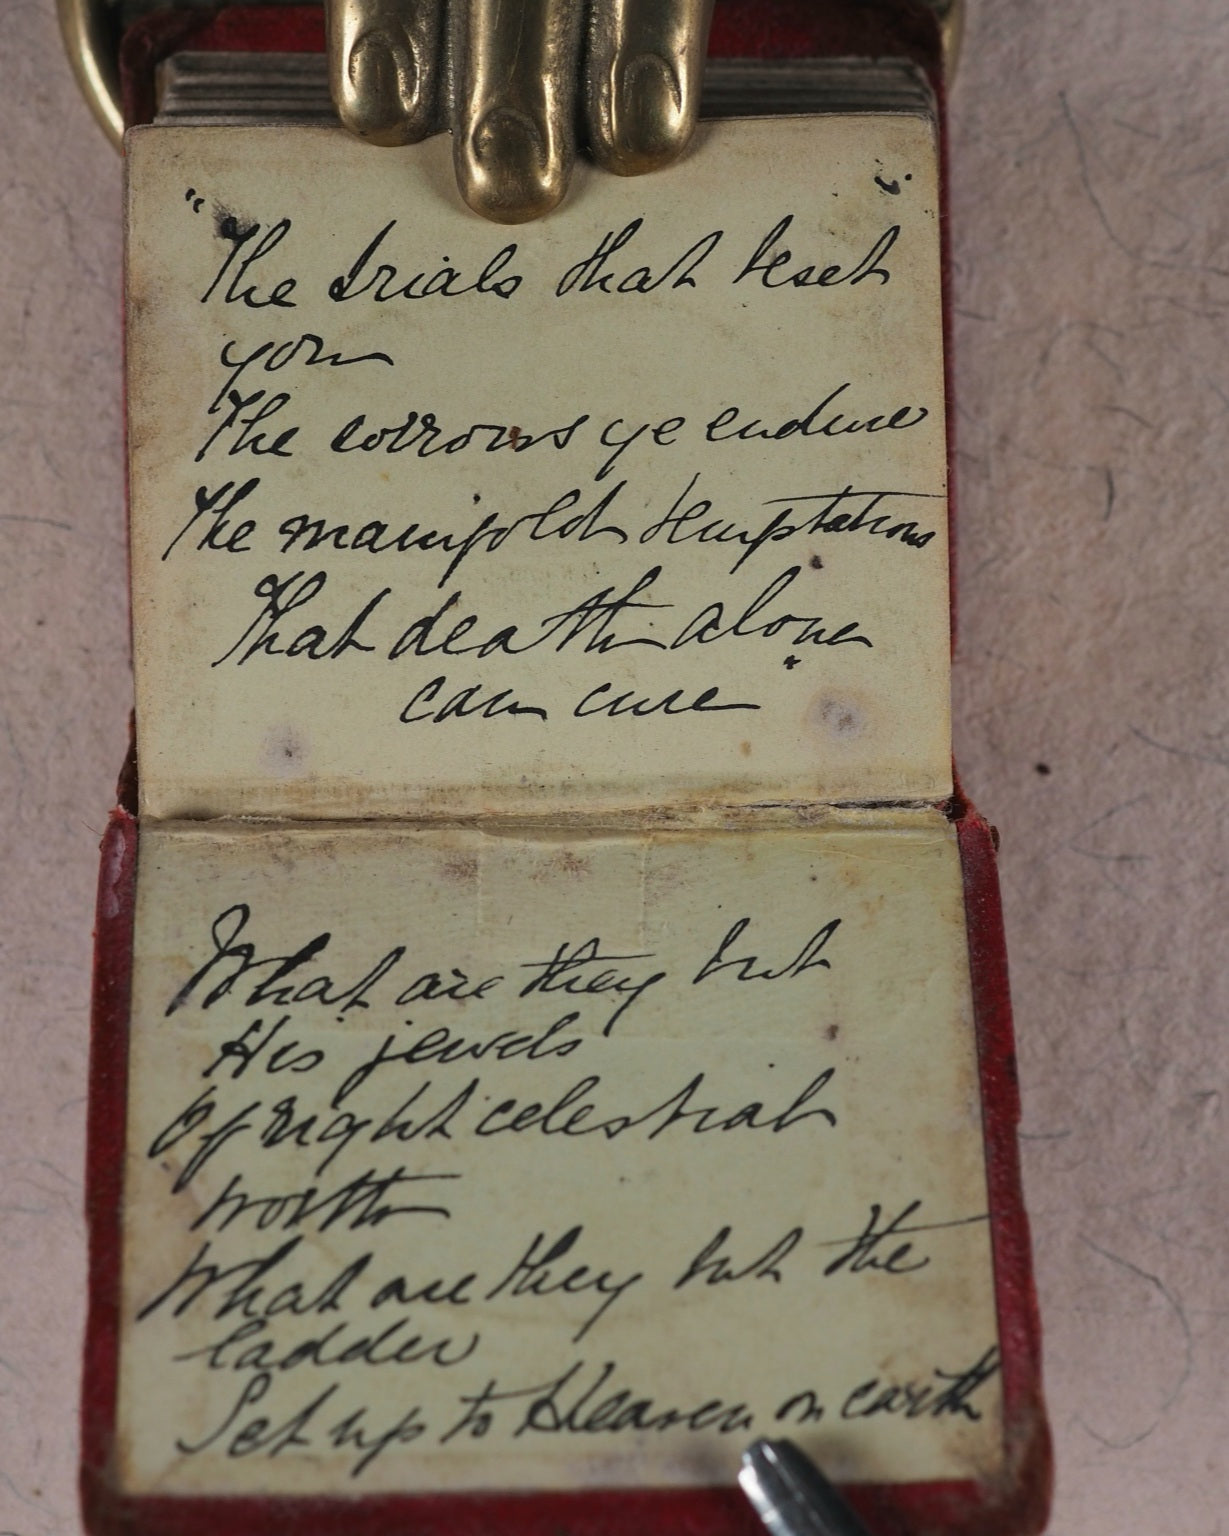 "The trials that beset
you
The sorrows ye endure
The manifold temptations
That death alone
can cure"
What are they but
His jewels
Of right celestial
worth
What are they but the
ladder
Set up to Heaven on earth